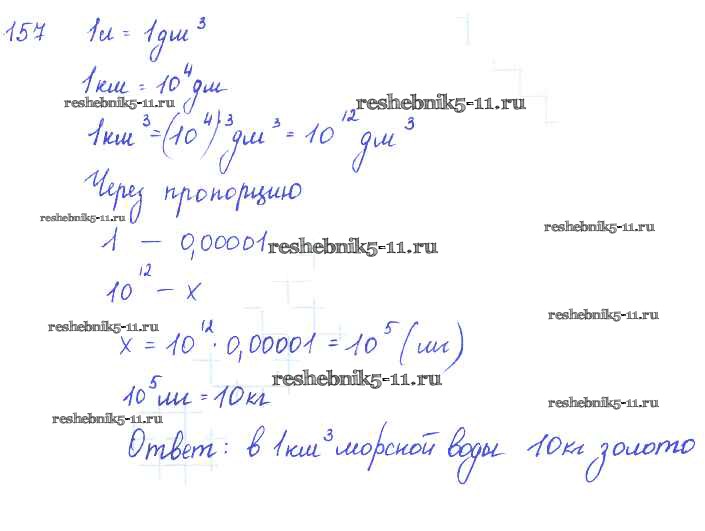 157 1л = 1дм³
1км = 10⁴ дм
reshebnik5-11.ru reshebnik5-11.ru
1км³ = (10⁴)³ дм³ = 10¹² дм³
Через пропорцию
reshebnik5-11.ru reshebnik5-11.ru
1 – 0,00001 reshebnik5-11.ru
10¹² – x
reshebnik5-11.ru reshebnik5-11.ru
x = 10¹² · 0,00001 = 10⁵ (мг)
reshebnik5-11.ru
10⁵ мг = 10кг reshebnik5-11.ru
reshebnik5-11.ru
Ответ: в 1км³ морской воды 10кг золото